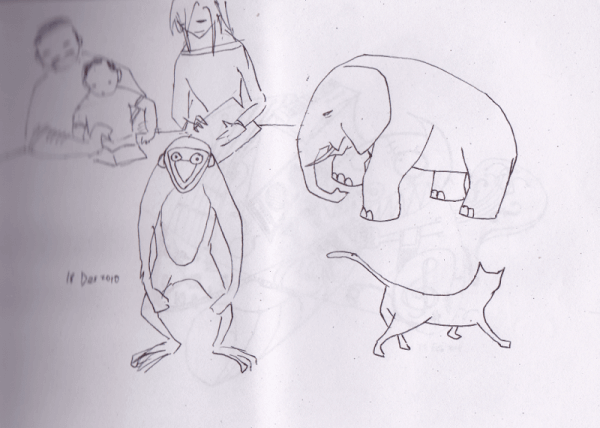 18 Dec 2010